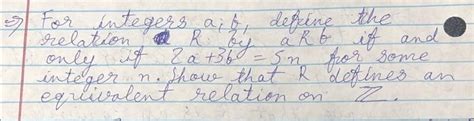 ⇒ For integers a, b, define the
relation R by aRb if and
only if 2a+3b = 5n for some
integer n. Show that R defines an
equlivalent relation on Z.